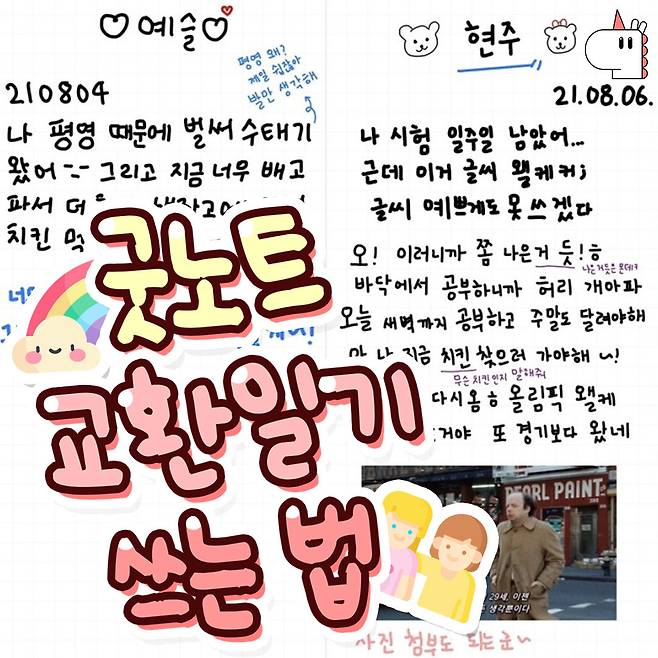 예슬
평영 왜?
제일 쉽잖아
발만 생각해
210804
나 평영 때문에 벌써 수태기
왔어 -.- 그리고 지금 너무 배고
파서 더
치킨 먹
현주
21.08.06.
나 시험 일주일 남았어...
근데 이거 글씨 왤케커;
글씨 예쁘게도 못 쓰겠다
오! 이러니까 쫌 나은거 듯!ㅎ
나은거듯은 몬데ㅋ
바닥에서 공부하니까 허리 개아파
오늘 새벽까지 공부하고 주말도 달려야해
나 지금 치킨 찾으러 가야해 ~!
무슨 치킨인지 말해줘
다시옴ㅎ 올림픽 왤케
거야 또 경기보다 왔네
굿노트
교환일기
쓰는 법
PEARL PAINT
29세, 이젠
생각뿐이다
사진 첨부도 되는군~